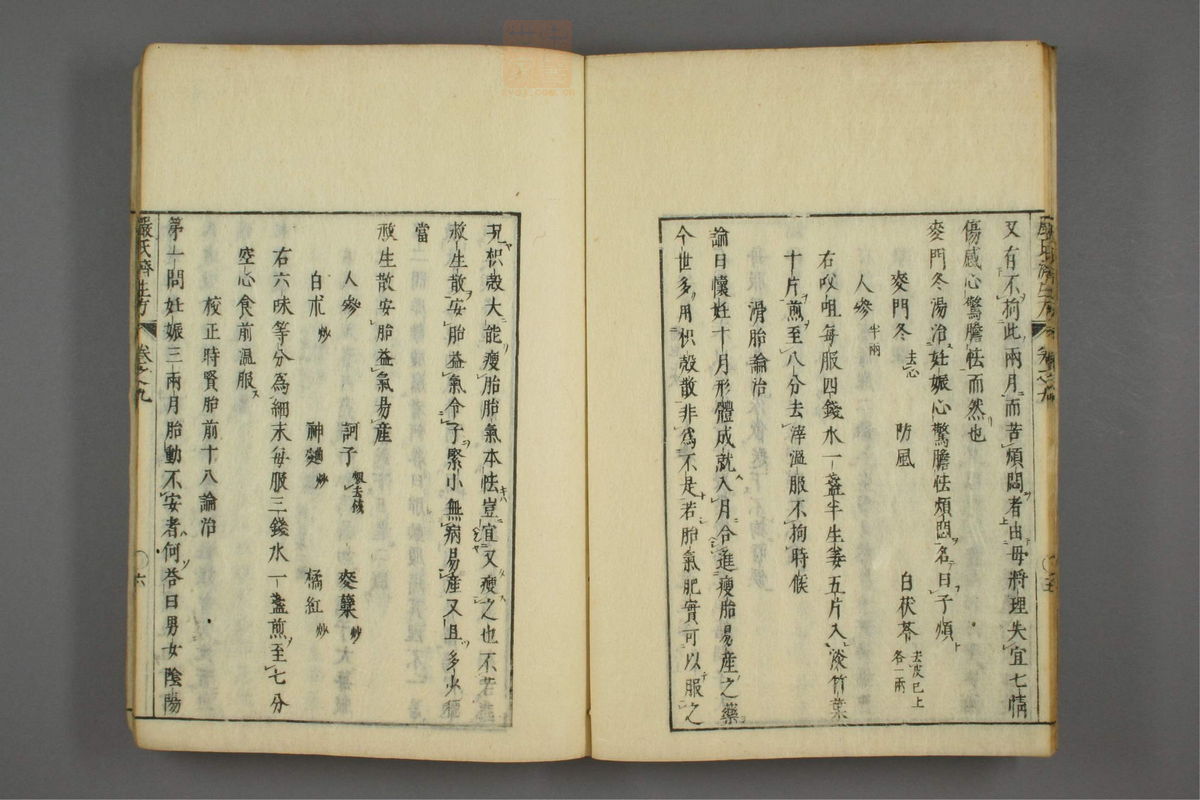 又有不拘此兩月而苦煩悶者由母將理失宜七情
傷感心驚膽怯而然也
麥門冬湯治妊娠心驚膽怯煩悶名曰子煩
麥門冬去心 防風 白茯苓去皮已上各一兩
人參半兩
右㕮咀每服四錢水一盞半生姜五片入淡竹葉
十片煎至八分去滓溫服不拘時候
滑胎論治
論曰懷妊十月形體成就入月合進瘦胎易產之藥
今世多用枳殼散非為不是若胎氣肥實可以服之
況枳殼大能瘦胎胎氣本怯豈宜又瘦之也不若
救生散安胎益氣令子緊小無病易產又且多火
當
救生散安胎益氣易產
人參 訶子 麥糵炒
白朮炒 神麯炒 橘紅炒
右六味等分為細末每服三錢水一盞煎至七分
空心食前溫服
校正時賢胎前十八論治
第一問妊娠三兩月胎動不安者何荅曰男女陰陽
嚴氏濟生方 卷之九 六